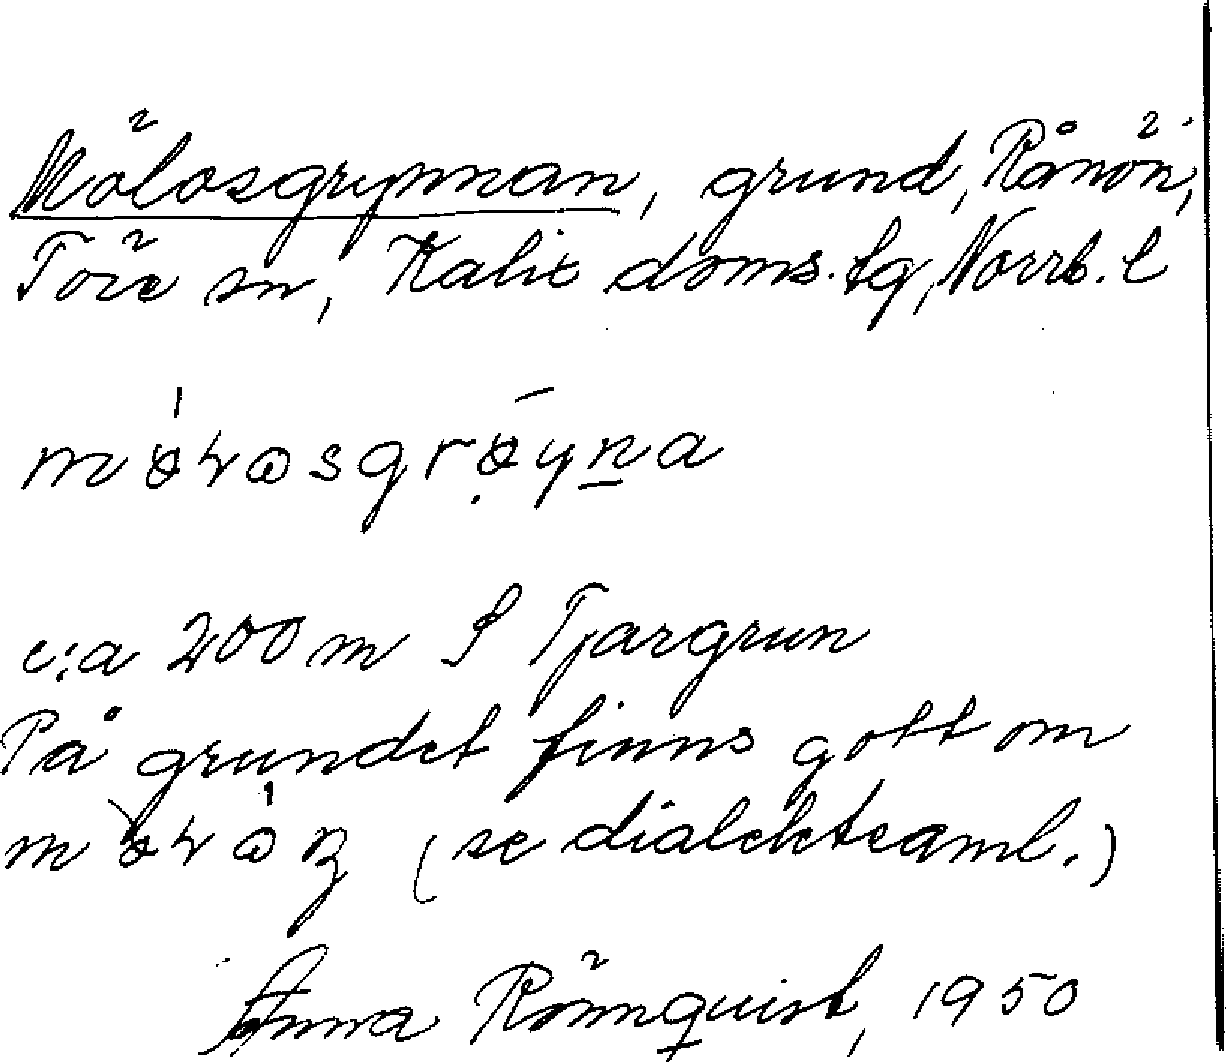 Mölosgrynnan, grund, Rånön,
Töre sn, Kalix doms. tg, Norrb. l
c:a 200 m S Tjärgrun
På grundet finns gott om
(se dialekteaml.)
Anna Rönnquist, 1950